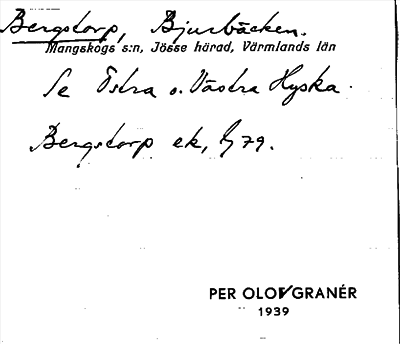 Bergstorp, Bjurbäcken.
Mangskogs s:n, Jösse härad, Värmlands län
Se Östra o. Västra Hyska.
Bergstorp ek, 79.
PER OLOF GRANÉR
1939